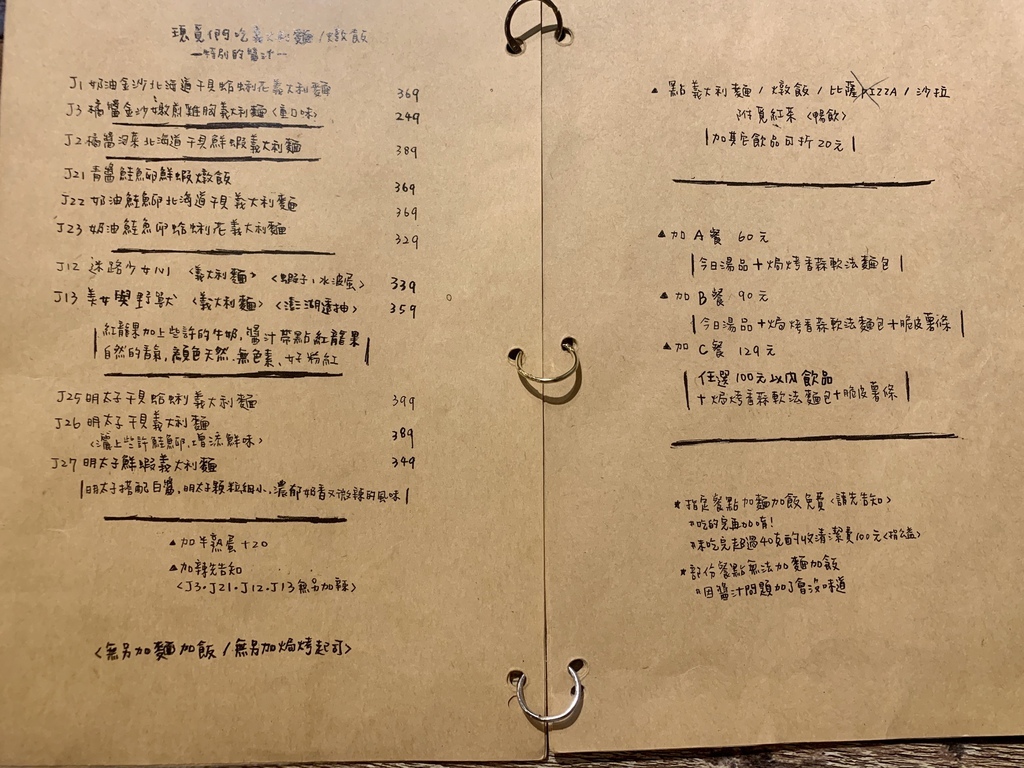 覓們吃義大利麵/燉飯
—特別的醬汁—
J1 奶油金沙北海道干貝蛤蜊花義大利麵 369
J3 橘醬金沙嫩煎雞胸義大利麵〈重口味〉 249
J2 橘醬海菜北海道干貝鮮蝦義大利麵 389
J21 青醬鮭魚卵鮮蝦燉飯 369
J22 奶油鮭魚卵北海道干貝義大利麵 369
J23 奶油鮭魚卵蛤蜊花義大利麵 329
J12 迷路少女心〈義大利麵〉〈蝦子、水波蛋〉 339
J13 美女與野獸〈義大利麵〉〈澎湖透抽〉 359
紅龍果加上些許的牛奶,醬汁帶點紅龍果
自然的香氣,顏色天然、無色素、好粉紅
J25 明太子干貝蛤蜊義大利麵 399
J26 明太子干貝義大利麵 389
〈灑上些許鮭魚卵,增添鮮味〉
J27 明太子鮮蝦義大利麵 349
明太子搭配白醬,明太子顆粒細小,濃郁奶香又微辣的風味
▲加半熟蛋+20
▲加辣先告知
〈J3、J21、J12、J13無另加辣〉
〈無另加麵加飯/無另加焗烤起司〉
▲ 點義大利麵/燉飯/比薩PIZZA/沙拉
附覓紅茶〈暢飲〉
加其它飲品可折20元
▲加A餐 60元
今日湯品+焗烤香蒜軟法麵包
▲加B餐 90元
今日湯品+焗烤香蒜軟法麵包+脆皮薯條
▲加C餐 129元
任選100元以內飲品
+焗烤香蒜軟法麵包+脆皮薯條
*指定餐點加麵加飯免費〈請先告知〉
"吃的完再加唷!
"未吃完超過40克酌收清潔費100元〈捐公益〉
*部份餐點無法加麵加飯
"因醬汁問題加了會沒味道